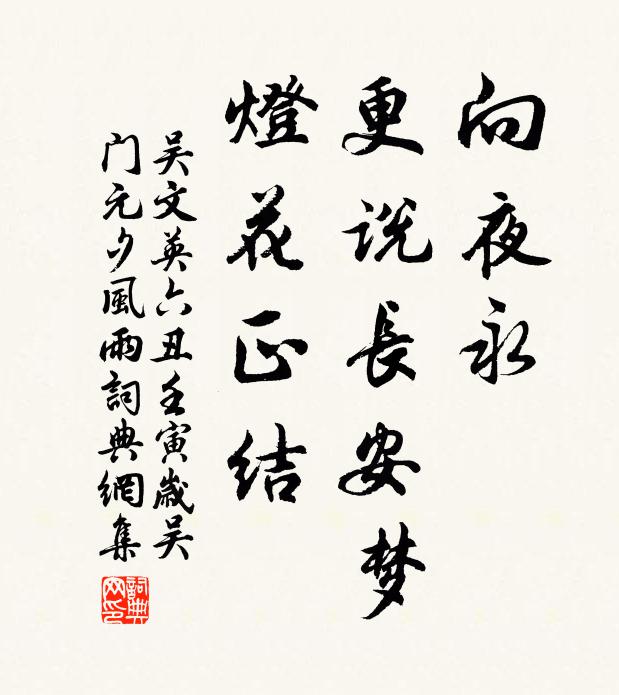 向夜永
更说長安梦
燈花正结
吴文英六丑壬寅歲吴
门元夕風雨詞典網集
詞典
网印